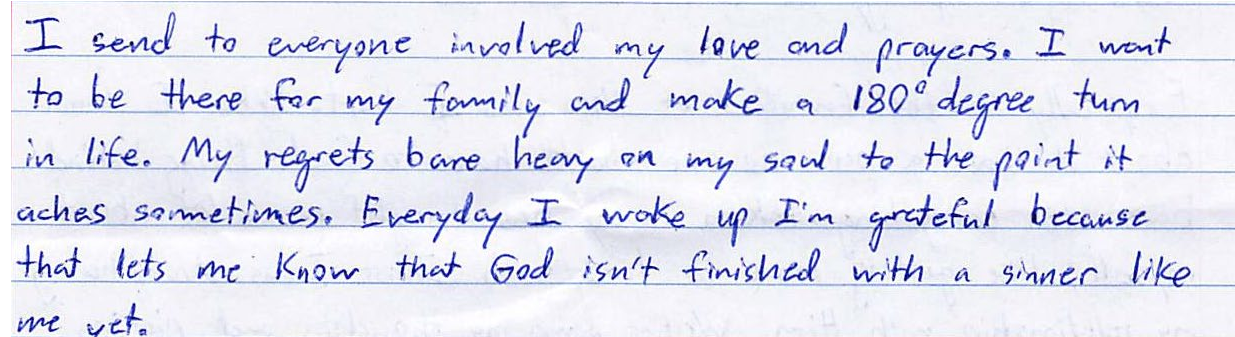 I send to everyone involved my love and prayers. I want
to be there for my family and make a 180° degree turn
in life. My regrets bare heavy on my soul to the point it
aches sometimes. Everyday I wake up I'm grateful because
that lets me know that God isn't finished with a sinner like
me yet.